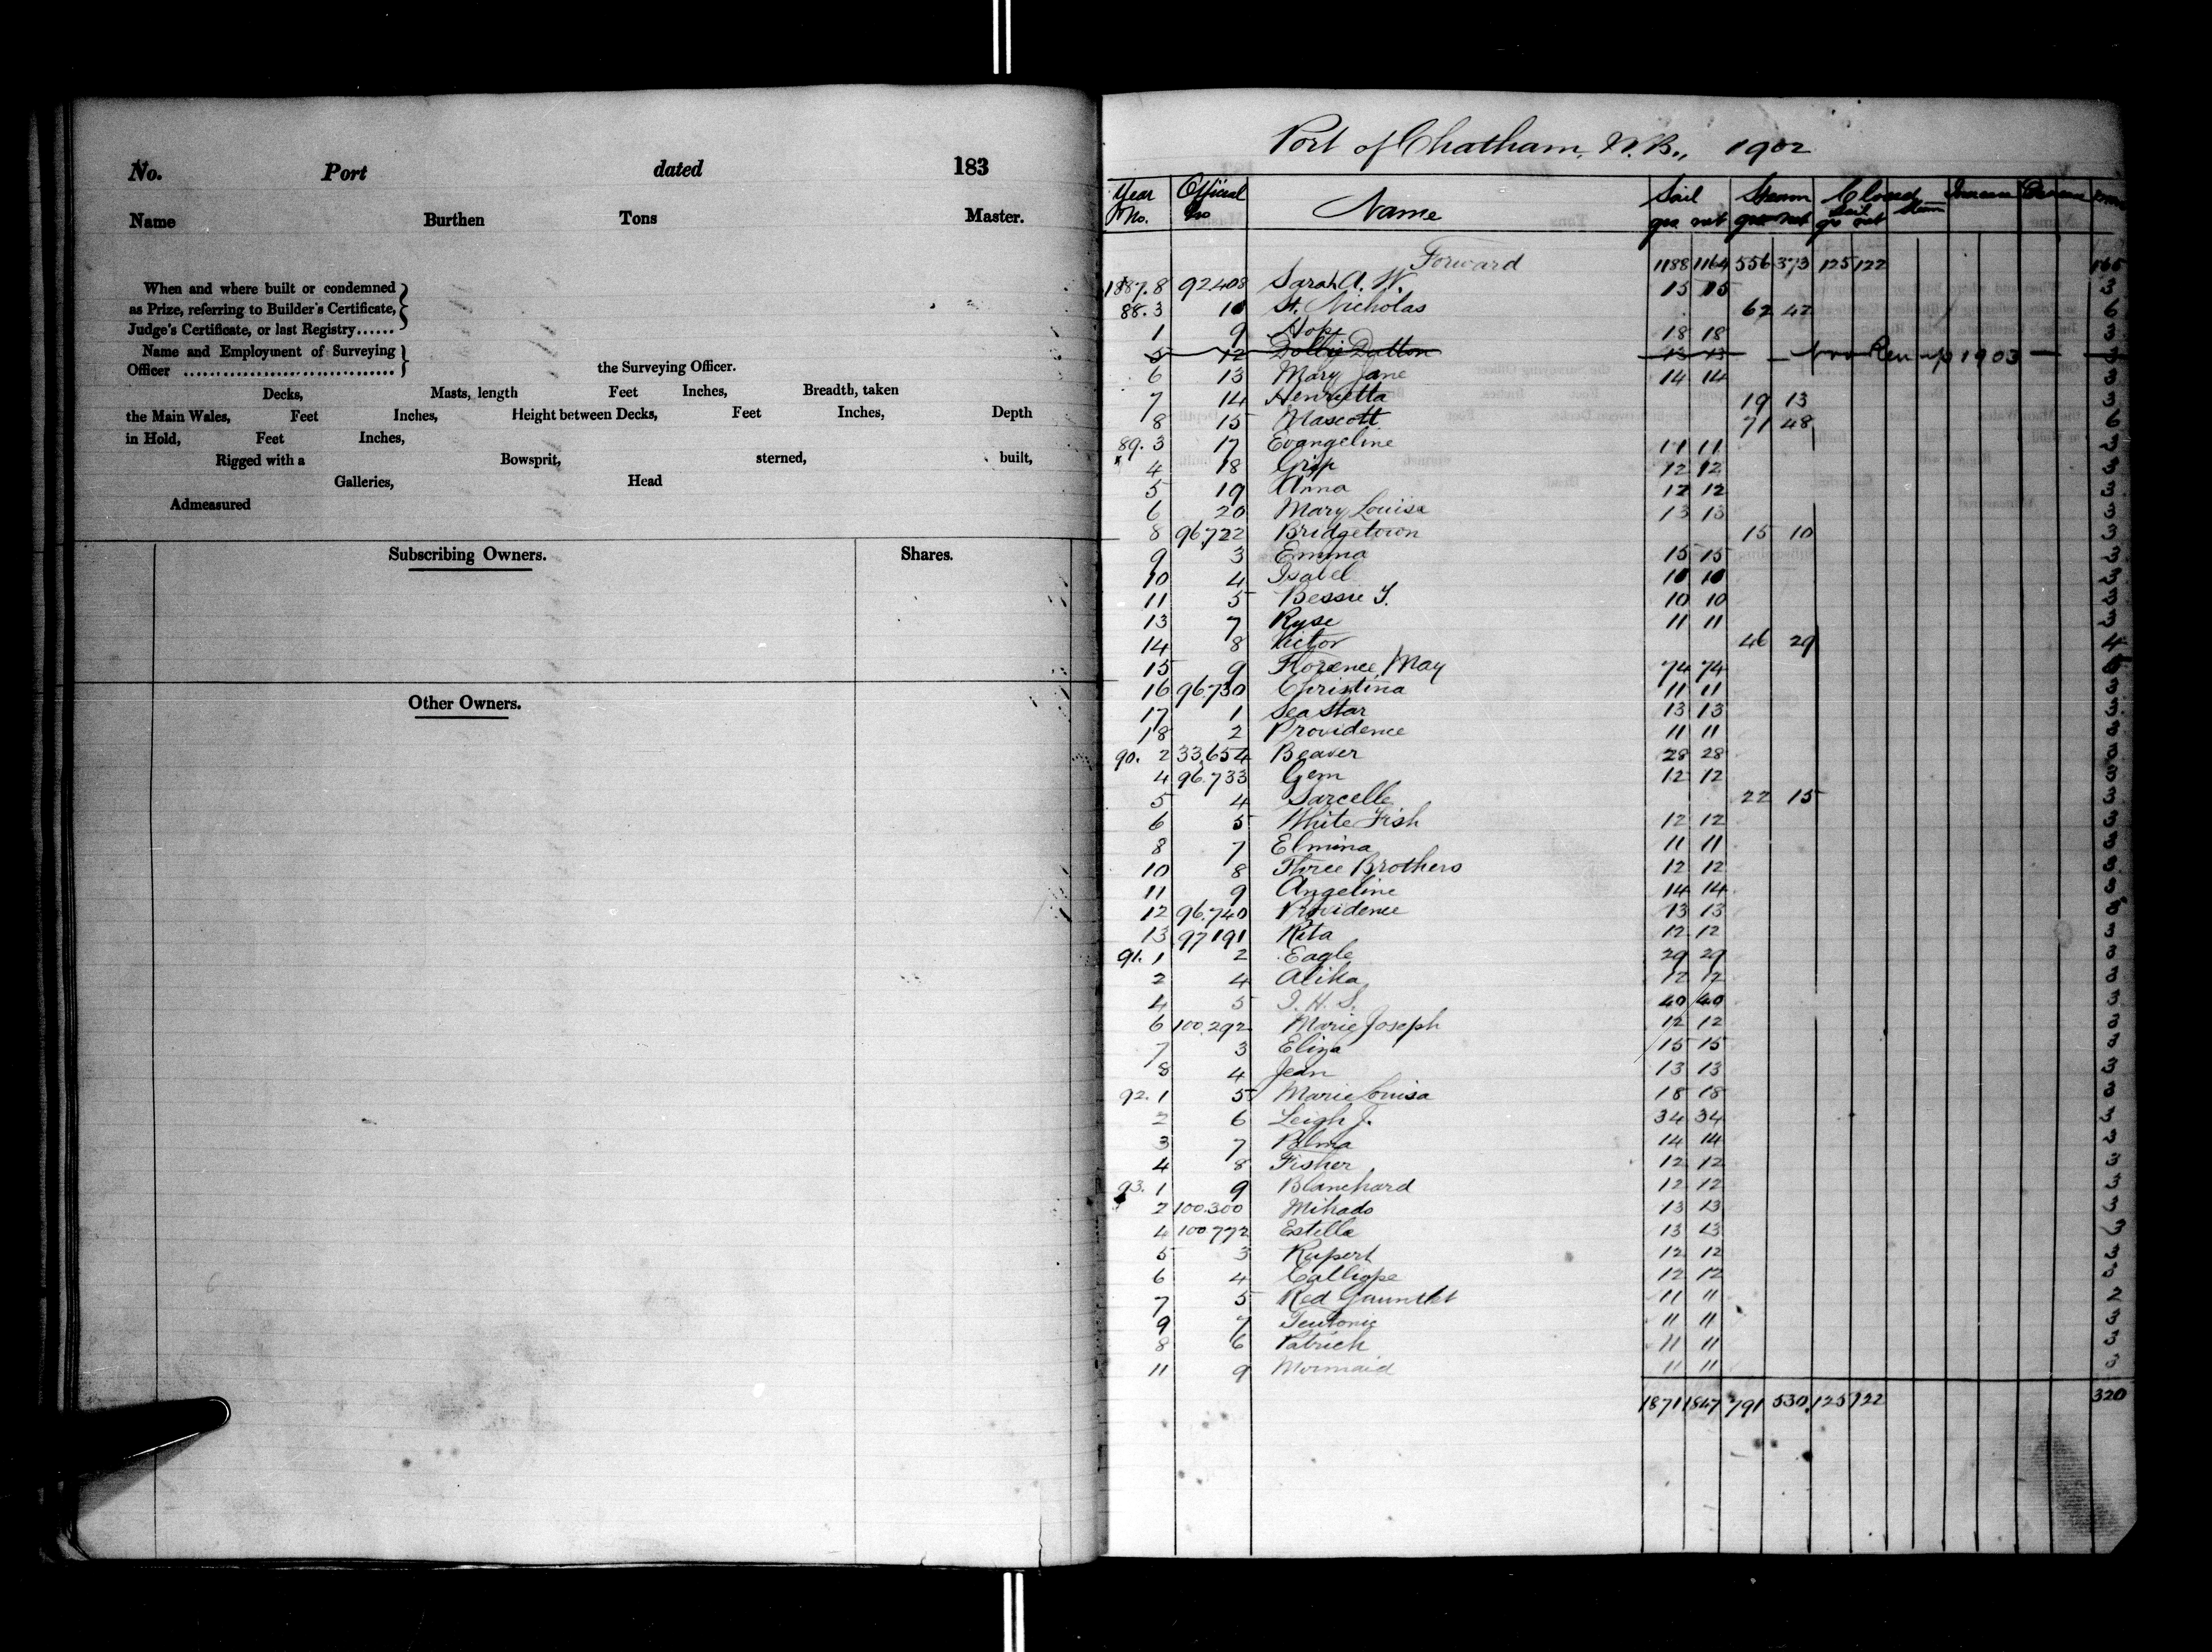 No. Port dated 183
Name Burthen Tons Master.
When and where built or condemned
as Prize, referring to Builder's Certificate,
Judge's Certificate, or last Registry......
Name and Employment of Surveying
Officer ................................ the Surveying Officer.
Decks, Masts, length Feet Inches, Breadth, taken
the Main Wales, Feet Inches, Height between Decks, Feet Inches, Depth
in Hold, Feet Inches,
Rigged with a Bowsprit, sterned, built,
Galleries, Head
Admeasured
Subscribing Owners. Shares.
Other Owners.
Port of Chatham, N.B., 1902
Year Official Sail Steam Closed
No. No Name gro net gro net Sail gro net Steam
Forward 1188 1164 556 373 125 122 165
1887.8 92408 Sarah A. W. 15 15 3
88.3 10 St. Nicholas 62 42 6
1 9 Hope 18 18 3
5 12 Dollie Dutton 13 13 1903 3
6 13 Mary Jane 14 14 3
7 14 Henrietta 19 13 3
8 15 Mascott 71 48 6
89.3 17 Evangeline 11 11 3
4 18 Grip 12 12 3
5 19 Anna 12 12 3
6 20 Mary Louise 13 13 3
8 96722 Bridgetown 15 10 3
9 3 Emma 15 15 3
10 4 Isabel 10 10 3
11 5 Bessie T. 10 10 3
13 7 Ryse 11 11 3
14 8 Victor 46 29 4
15 9 Florence May 74 74
16 96730 Christina 11 11 3
17 1 Sea Star 13 13 3
18 2 Providence 11 11 3
90. 2 33,654 Beaver 28 28 3
4 96.733 Gem 12 12 3
5 4 Sarcelle 22 15 3
6 5 White Fish 12 12 3
8 7 Elmina 11 11 3
10 8 Three Brothers 12 12 3
11 9 Angeline 14 14 3
12 96.740 Providence 13 13 3
13 97191 Rita 12 12 3
91. 1 2 Eagle 29 29 3
2 4 Alika 12 12 3
4 5 I. H. S. 40 40 3
6 100.292 Marie Joseph 12 12 3
7 3 Eliza 15 15 3
8 4 Jean 13 13 3
92. 1 5 Marie Louisa 18 18 3
2 6 Leigh J. 34 34 3
3 7 Palma 14 14 3
4 8 Fisher 12 12 3
93. 1 9 Blanchard 12 12 3
2 100.300 Mikado 13 13 3
4 100772 Estella 13 13 3
5 3 Rupert 12 12 3
6 4 Calliope 12 12 3
7 5 Red Gauntlet 11 11 2
9 7 Teutonic 11 11 3
8 6 Patrick 11 11 3
11 9 Mermaid 11 11 3
1871 1847 791 530 125 122 320